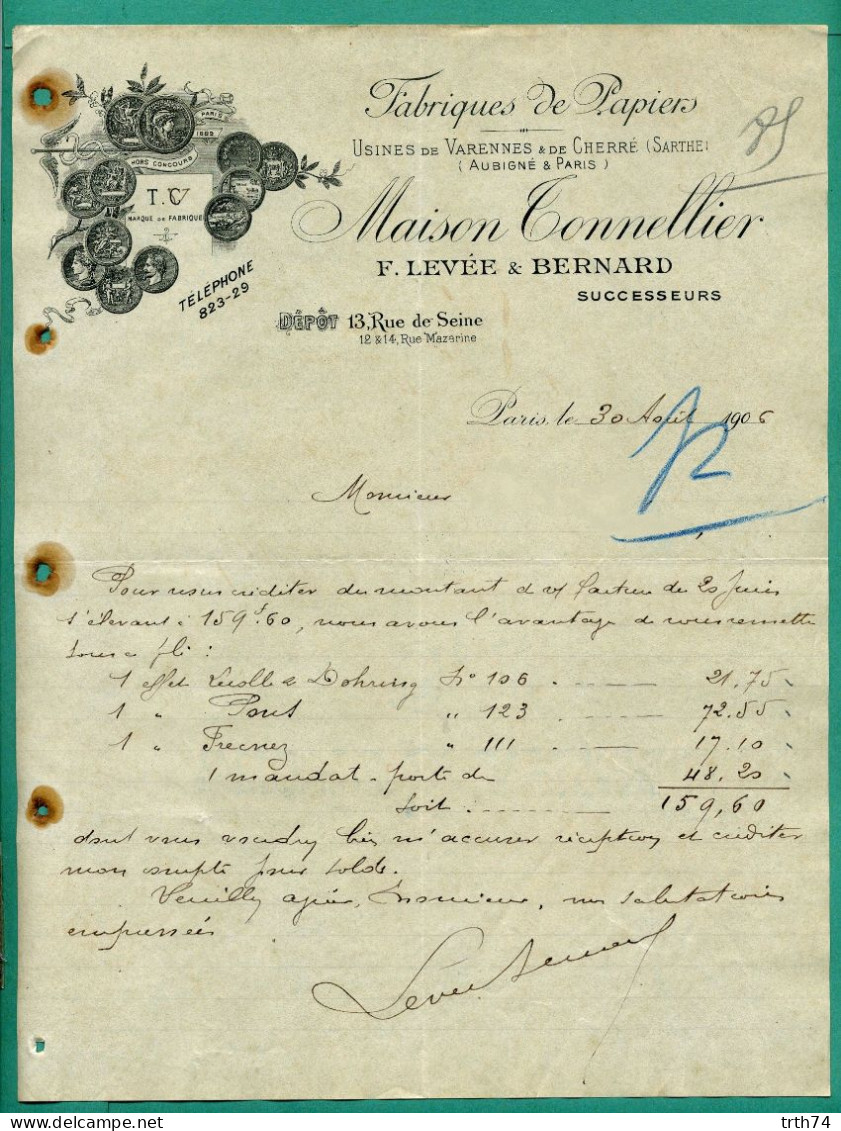 Fabriques de Papiers
USINES DE VARENNES & DE CHERRÉ (SARTHE)
(AUBIGNÉ & PARIS)
Maison Tonnellier
F. LEVÉE & BERNARD
SUCCESSEURS
DÉPÔT 13, Rue de Seine
12 & 14, Rue Mazarine
PARIS
1889
HORS CONCOURS
T. CV
MARQUE DE FABRIQUE
TÉLÉPHONE
823-29
Paris, le 30 Août 1906
Monsieur
Pour nous créditer du montant de v/ facture du 20 Juin
s'élevant à 159f.60, nous avons l'avantage de vous remettre
sous ce pli :
1 effet & Dohring No 106 . 21.75
1 " Pont " 123 . 72.55
1 " " 111 . 17.10
1 mandat-poste de 48.20
soit . 159,60
dont vous voudrez bien m'accuser réception et créditer
mon compte pour solde.
Veuillez agréer, Monsieur, nos salutations
empressées
Levée Bernard
trth74